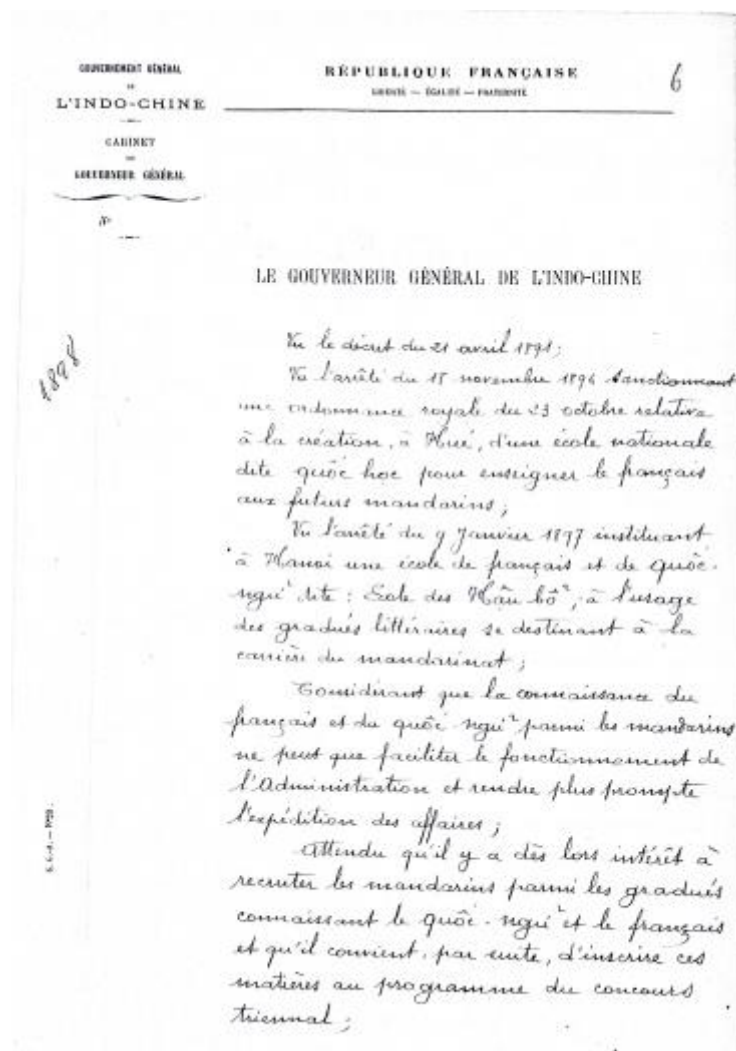 GOUVERNEMENT GÉNÉRAL
DE
L'INDO-CHINE
CABINET
DU
GOUVERNEUR GÉNÉRAL
N°
RÉPUBLIQUE FRANÇAISE
LIBERTÉ — ÉGALITÉ — FRATERNITÉ
6
1898
LE GOUVERNEUR GÉNÉRAL DE L'INDO-CHINE
Vu le décret du 21 avril 1891;
Vu l'arrêté du 18 novembre 1896 sanctionnant
une ordonnance royale du 23 octobre relative
à la création, à Hué, d'une école nationale
dite quôc hoc pour enseigner le français
aux futurs mandarins;
Vu l'arrêté du 9 Janvier 1897 instituant
à Hanoi une école de français et de quôc-
ngu dite : Ecole des Hâu bô, à l'usage
des gradués littéraires se destinant à la
carrière du mandarinat;
Considérant que la connaissance du
français et du quôc ngu parmi les mandarins
ne peut que faciliter le fonctionnement de
l'Administration et rendre plus prompte
l'expédition des affaires;
Attendu qu'il y a dès lors intérêt à
recruter les mandarins parmi les gradués
connaissant le quôc-ngu et le français
et qu'il convient, par suite, d'inscrire ces
matières au programme du concours
triennal;